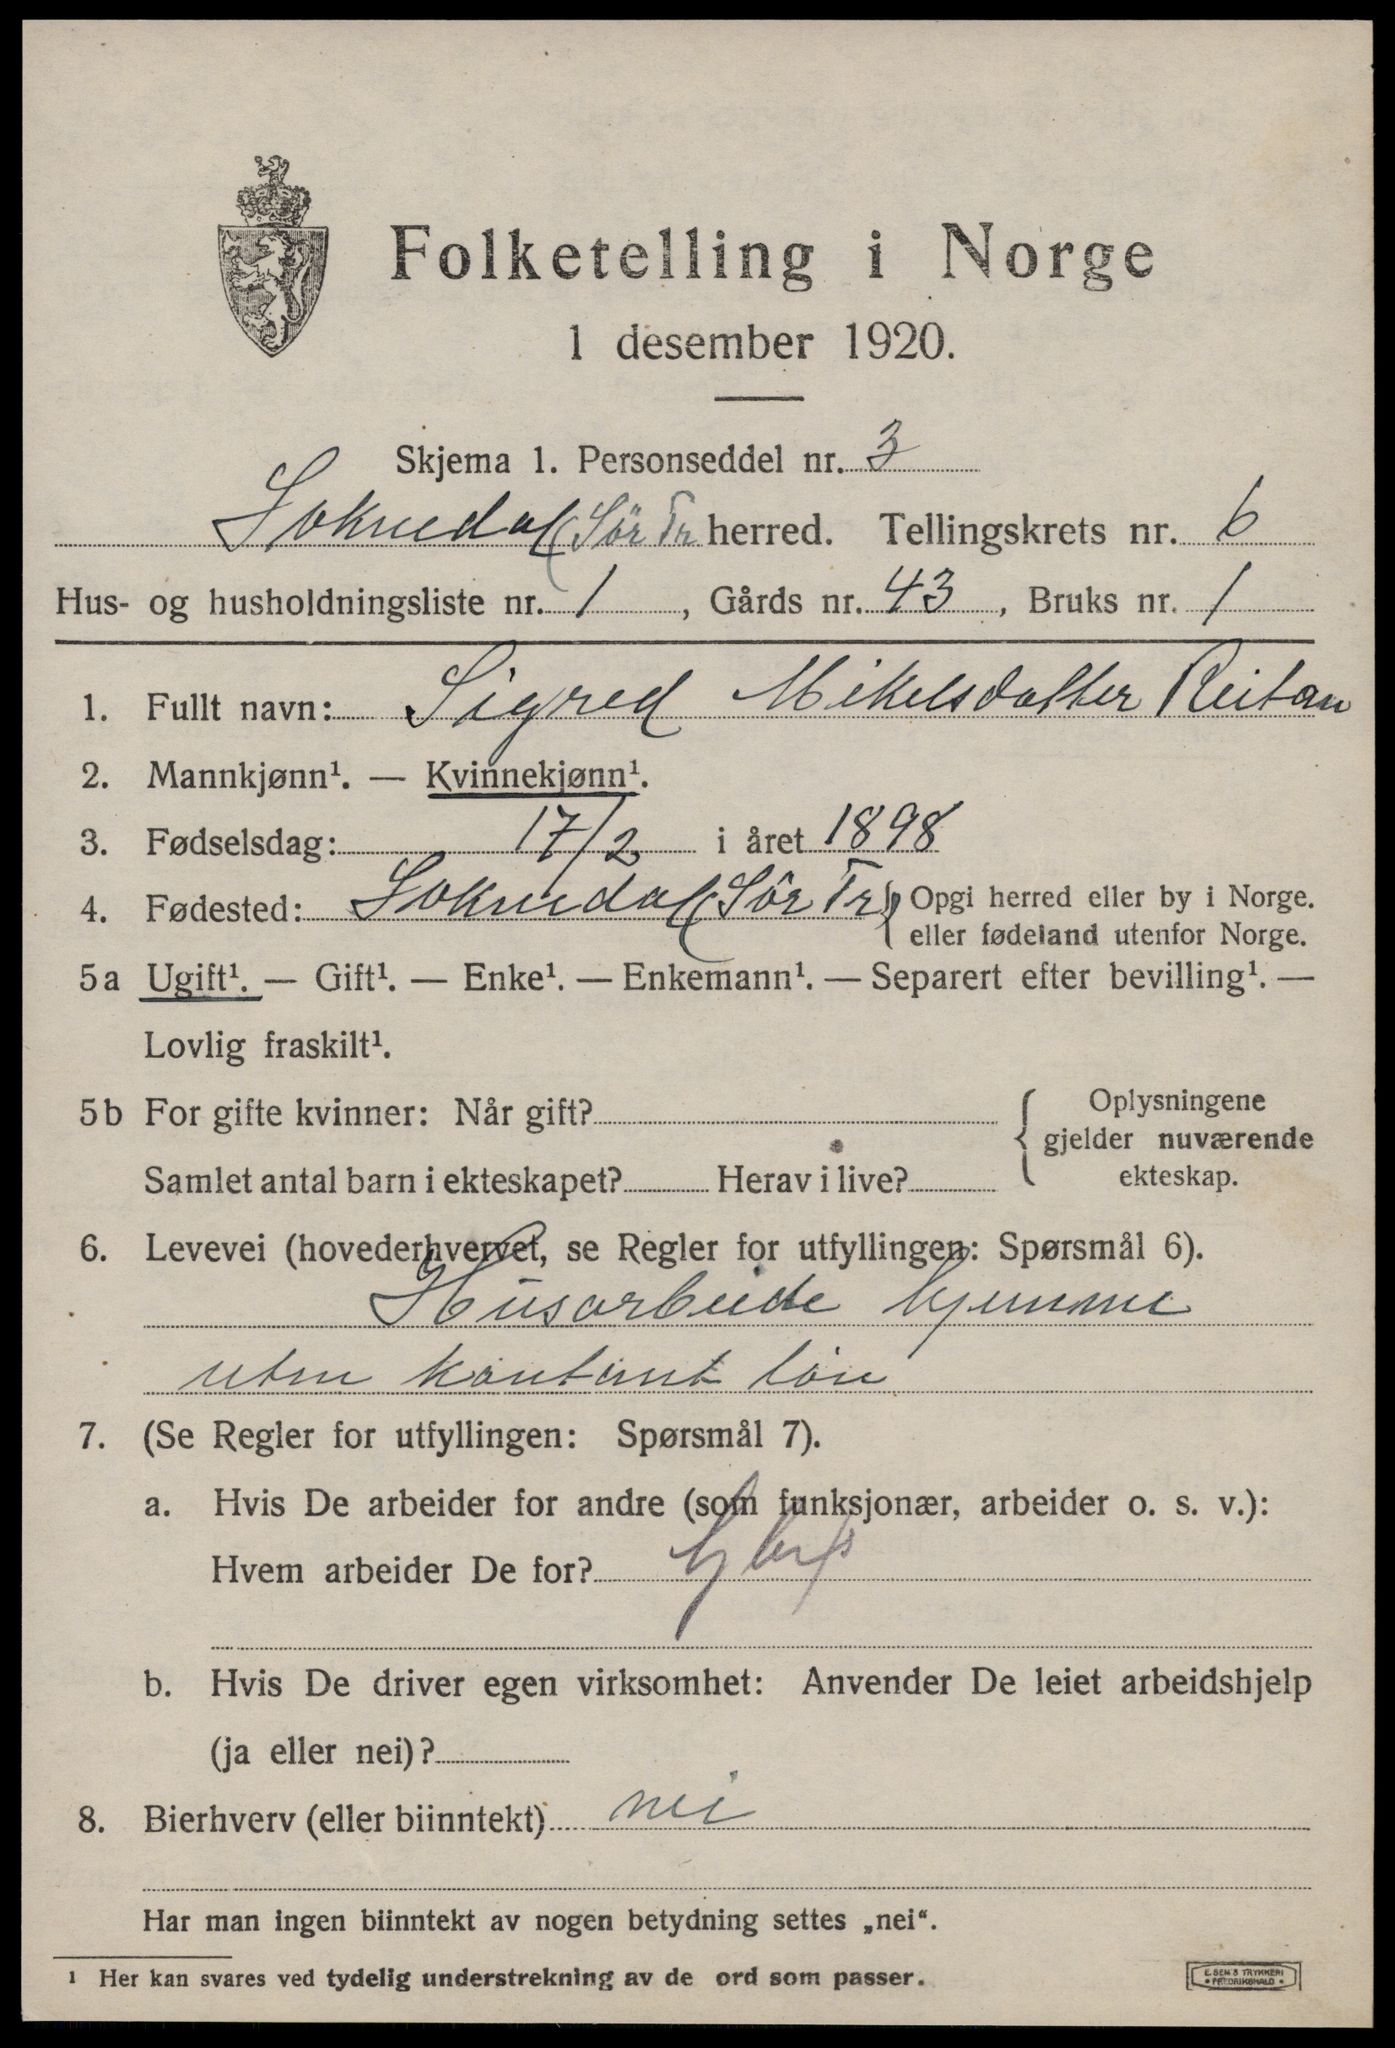 Folketelling i Norge
1 desember 1920.
Skjema 1. Personseddel nr. 3
Soknedal (Sör Tr herred. Tellingskrets nr. 6
Hus- og husholdningsliste nr. 1, Gårds nr. 43, Bruks nr. 1
1. Fullt navn: Sigred Mikelsdatter Reitan
2. Mannkjønn¹. — Kvinnekjønn¹.
3. Fødselsdag: 17/2 i året 1898
4. Fødested: Soknedal (Sör Tr) { Opgi herred eller by i Norge.
eller fødeland utenfor Norge.
5a Ugift¹. — Gift¹. — Enke¹. — Enkemann¹. — Separert efter bevilling¹. —
Lovlig fraskilt¹.
5b For gifte kvinner: Når gift?
Samlet antal barn i ekteskapet? Herav i live?
{ Oplysningene
gjelder nuværende
ekteskap.
6. Levevei (hovederhvervet, se Regler for utfyllingen: Spørsmål 6).
Husarbeide hjemme
uten kontant løn
7. (Se Regler for utfyllingen: Spørsmål 7).
a. Hvis De arbeider for andre (som funksjonær, arbeider o. s. v.):
Hvem arbeider De for?
b. Hvis De driver egen virksomhet: Anvender De leiet arbeidshjelp
(ja eller nei)?
8. Bierhverv (eller biinntekt) nei
Har man ingen biinntekt av nogen betydning settes „nei“.
¹ Her kan svares ved tydelig understrekning av de ord som passer.
E. SEM'S TRYKKERI
• FREDRIKSHALD •